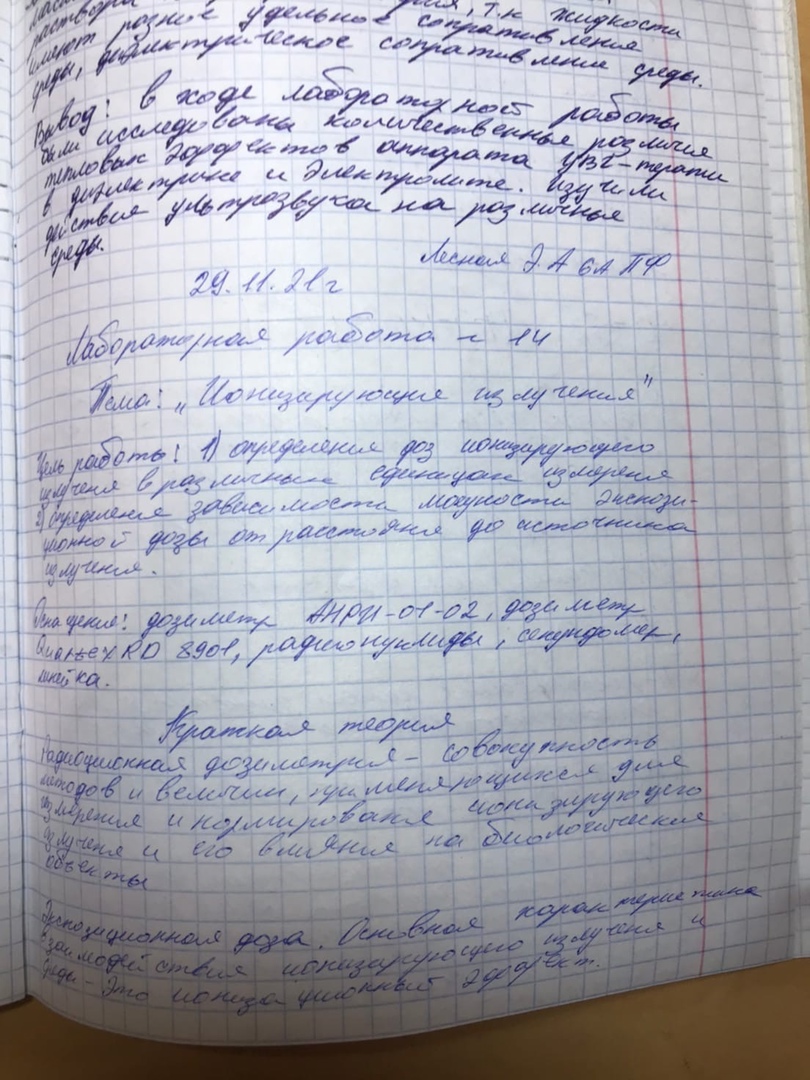 раствора т.к жидкости
имеют разное удельное сопративление
среды, диэлектрическое сопративление среды.
Вывод: в ходе лабораторной работы
были исследованы количественные различия
тепловых эффектов аппарата УВЧ-терапии
в диэлектрике и электролите. изучили
действия ультрозвука на различные
среды.
Лесная Э.А 6А ПФ
29.11.21г
Лабораторная работа ~ 14
Тема: „Ионизирующие излучения"
Цель работы: 1) определения доз ионизирующего
излученя в различных единицах измереня
2) определения зависимости мощности экспози-
ционной дозы от расстояния до источника
излучения.
Оснащение: дозиметр АНРИ-01-02, дозиметр
RD 8901, радионуклиды, секундомер,
линейка.
Краткая теория
Радиоционная дозиметрия - совокупность
методов и величин, применяющихся для
измерения и нормированя ионизирующего
излученя и его влияние на биологические
объекты
Экспозиционная доза. Основная характеристика
взаимодействия ионизирующего излученя и
среды - Это ионизационный эффект.